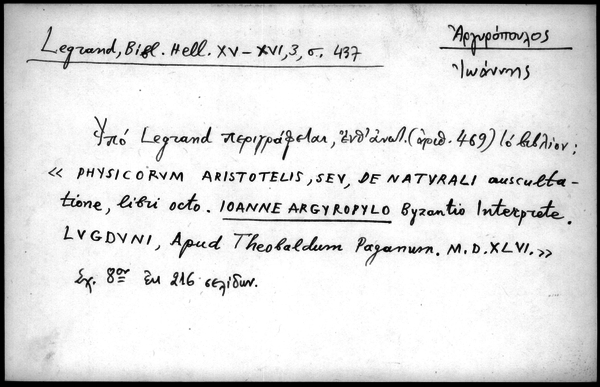 Legrand, Bibl. Hell. XV–XVI, 3, σ. 437
Ἀργυρόπουλος
Ἰωάννης
Ὑπό Legrand περιγράφεται, ἔνθ' ἀνωτ. (ἀριθ. 469) τό βιβλίον:
« PHYSICORVM ARISTOTELIS, SEV, DE NATVRALI ausculta-
tione, libri octo. IOANNE ARGYROPYLO Byzantio Interprete.
LVGDVNI, Apud Theobaldum Paganum. M.D.XLVI. »
Σχ. 8ον ἐκ 216 σελίδων.